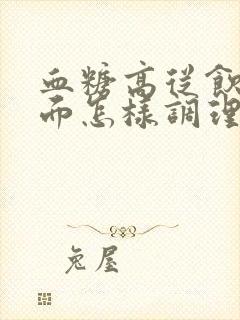 血糖高從飲
而怎樣調理
兔屋